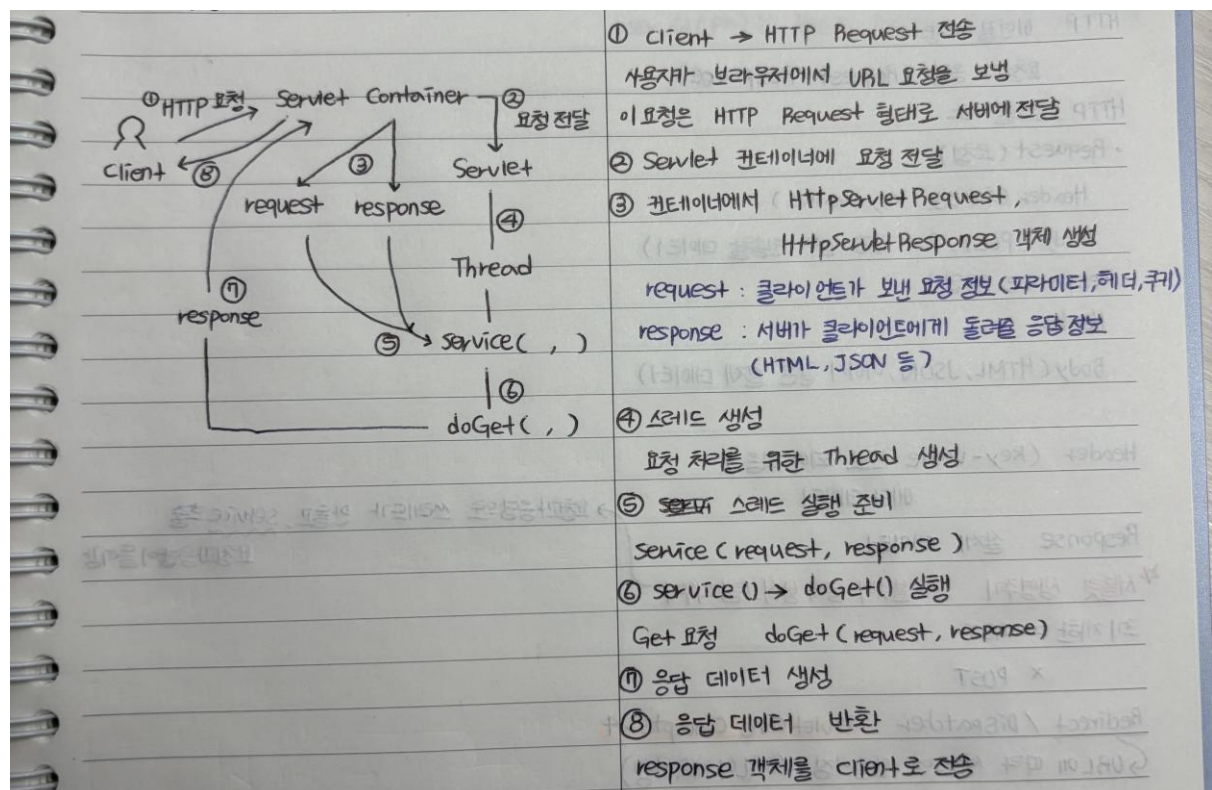 ①HTTP 요청
Servlet Container
②
요청 전달
Client
⑧
③
Servlet
request
response
④
Thread
⑦
response
⑤
service( , )
⑥
doGet( , )
① Client → HTTP Request 전송
사용자가 브라우저에서 URL 요청을 보냄
이 요청은 HTTP Request 형태로 서버에 전달
② Servlet 컨테이너에 요청 전달
③ 컨테이너에서 HttpServletRequest,
HttpServletResponse 객체 생성
request : 클라이언트가 보낸 요청 정보(파라미터,헤더,쿠키)
response : 서버가 클라이언트에게 돌려줄 응답정보
(HTML,JSON 등)
④ 스레드 생성
요청 처리를 위한 Thread 생성
⑤ 스레드 실행 준비
service (request, response)
⑥ service () → doGet() 실행
Get 요청 doGet (request, response)
⑦ 응답 데이터 생성
⑧ 응답 데이터 반환
response 객체를 client로 전송